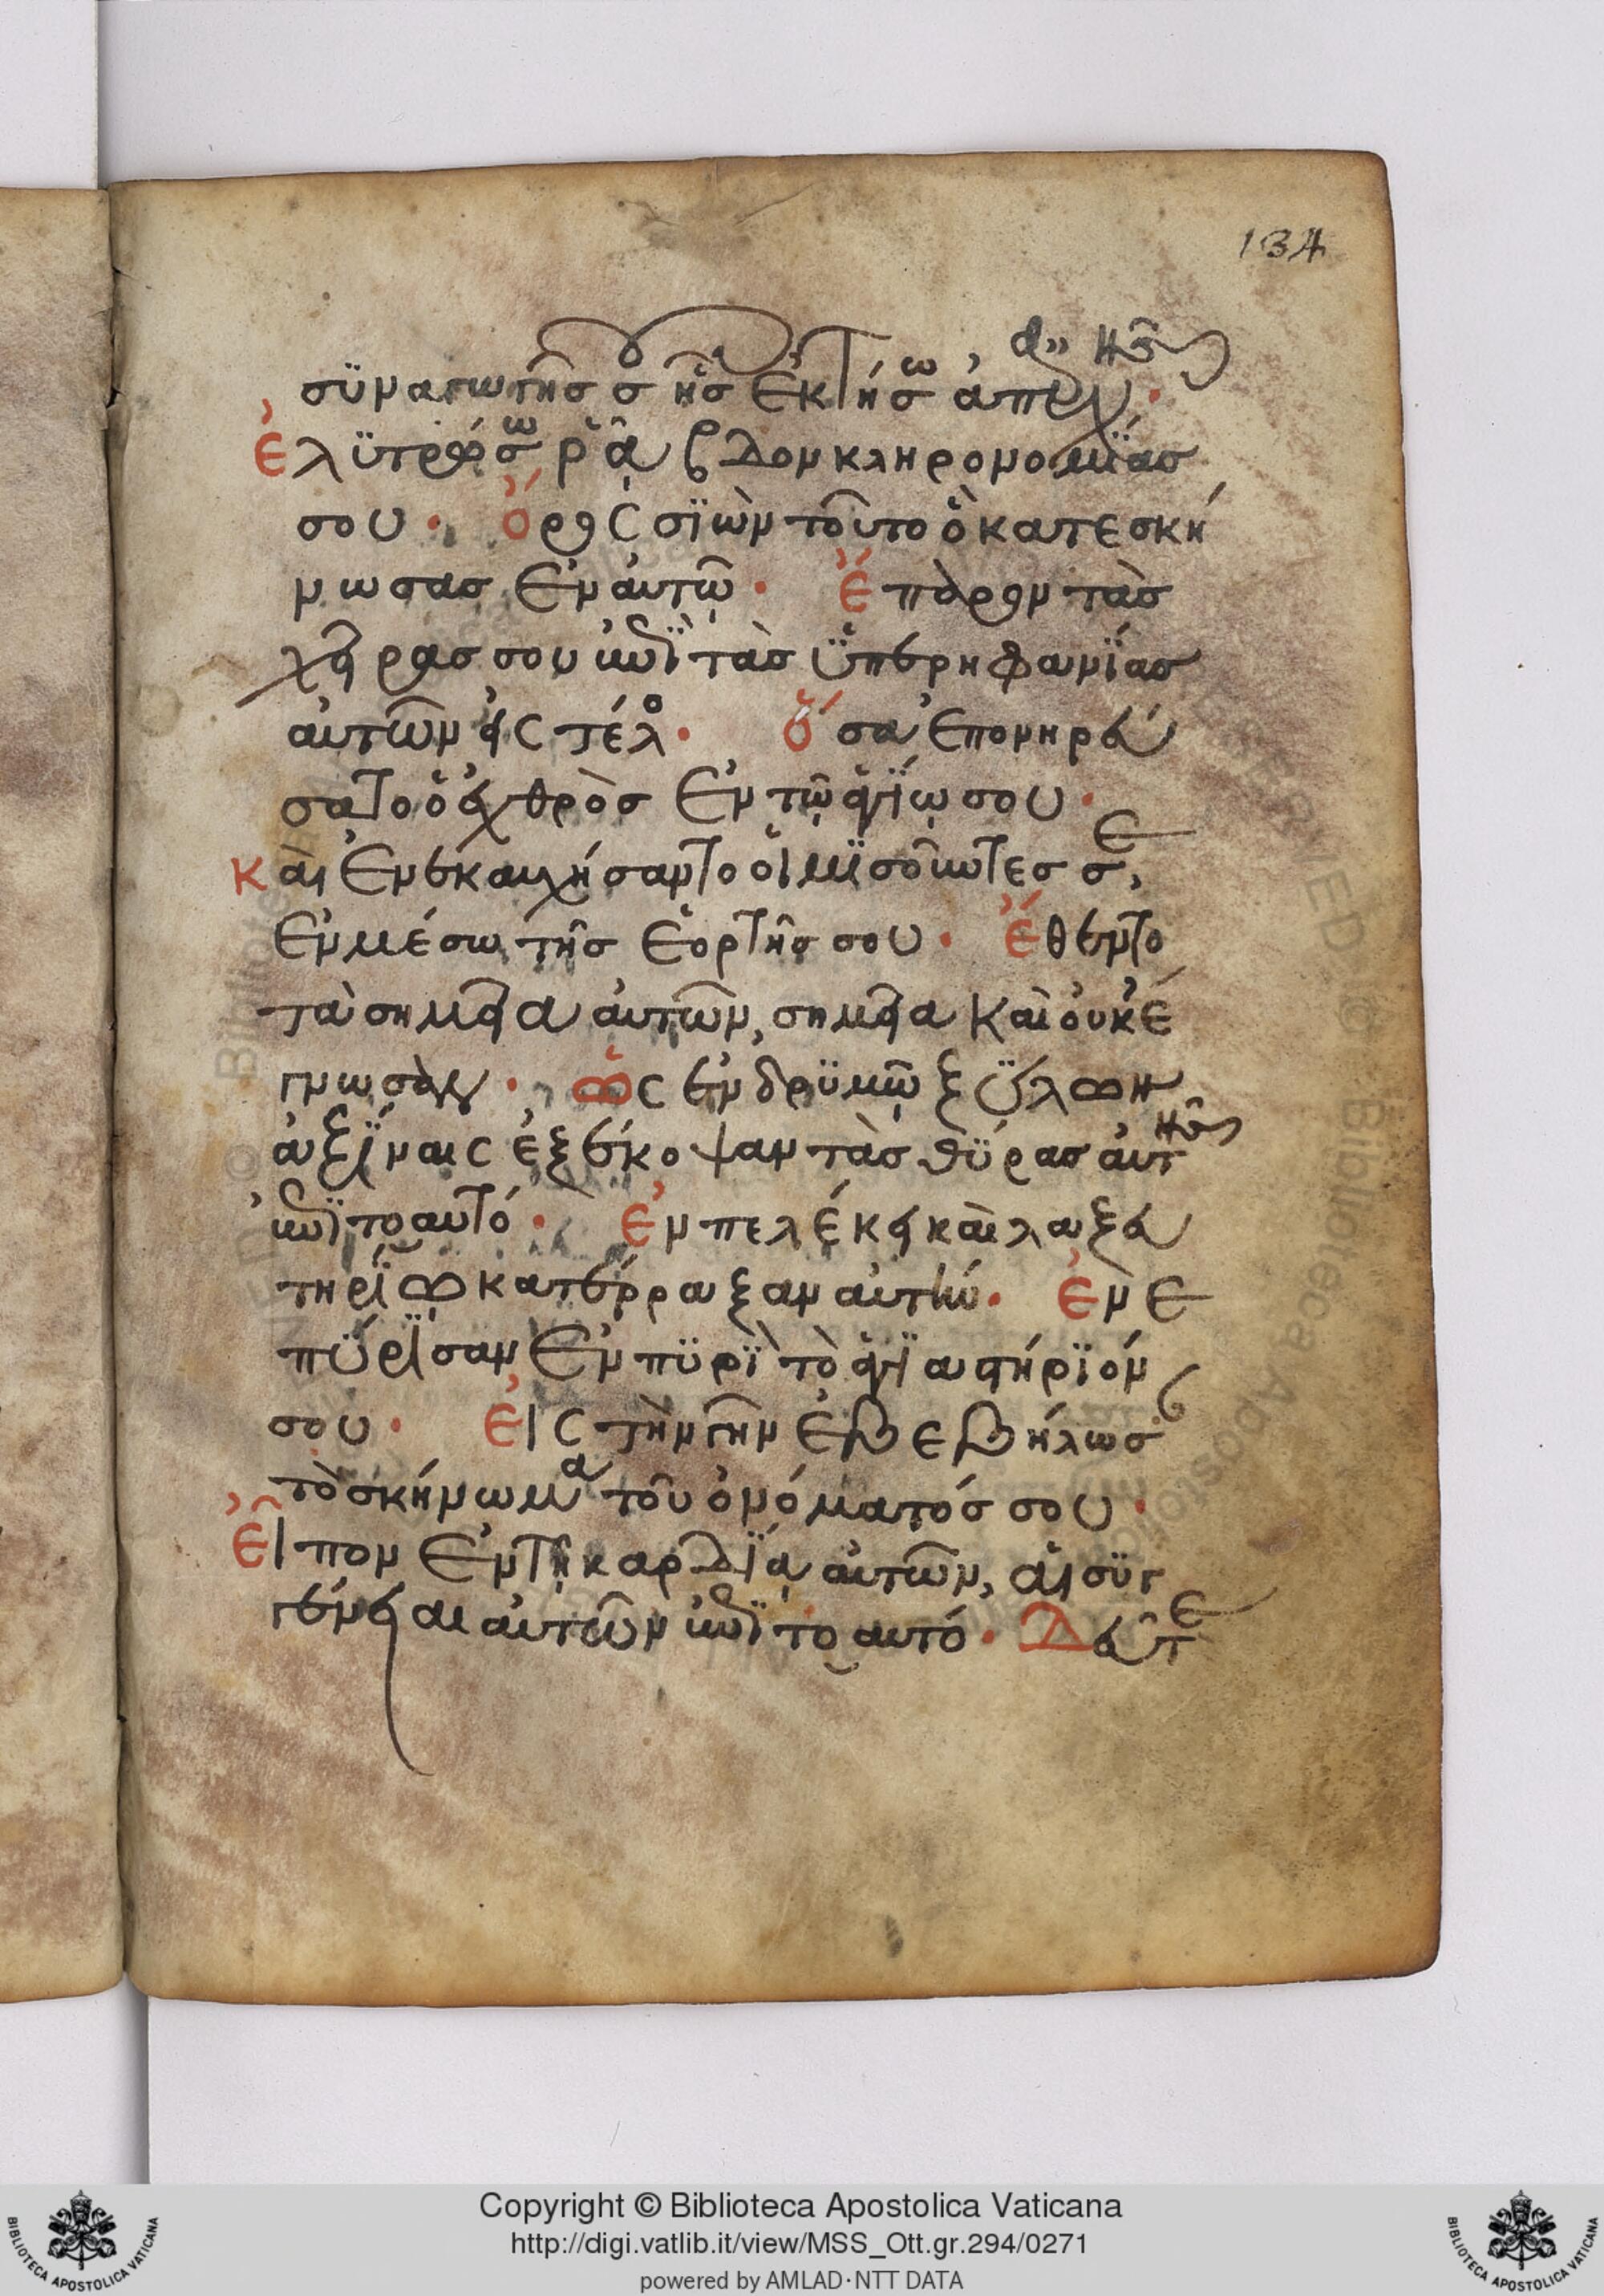 134
συναγωγῆς σου ἧς ἐκτήσω ἀπ' ἀρχῆς·
Ἐλυτρώσω ῥάβδον κληρονομίας
σου· Ὄρος σϊὼν τοῦτο ὃ κατεσκή
νωσας ἐν αὐτῷ· Ἔπαρον τὰς
χεῖρας σου ἐπῒ τὰς ὑπερηφανΐας
αὐτῶν εἰς τέλος· Ὅσα ἐπονηρεύ
σατο ὁ ἐχθρὸς ἐν τῷ ἁγΐῳ σου·
Καὶ ἐνεκαυχήσαντο οἱ μϊσοῦντες σε,
ἐν μέσῳ τῆς ἑορτῆς σου· Ἔθεντο
τὰ σημεῖα αὐτῶν, σημεῖα καὶ οὐκ ἔ
γνωσαν· Ὡς ἐν δρυμῷ ξύλων
ἀξΐναις ἐξέκοψαν τὰς θύρας αὐτῆς
ἐπῒ το αυτό· Ἐν πελέκει καὶ λαξευ
τηρΐῳ κατέρραξαν αὐτήν· Ἐνε
πύρϊσαν ἐν πυρῒ τὸ ἁγϊαστήρϊόν
σου· Εἰς τὴν γῆν ἐβεβήλωσαν
τὸ σκήνωμα τοῦ ὀνόματός σου·
Εἶπον ἐν τῇ καρδΐᾳ αὐτῶν, αἱ συγ
γένειαι αὐτῶν ἐπῒ το αυτό· Δεῦτε
Copyright © Biblioteca Apostolica Vaticana
http://digi.vatlib.it/view/MSS_Ott.gr.294/0271
powered by AMLAD·NTT DATA
BIBLIOTECA APOSTOLICA VATICANA
BIBLIOTECA APOSTOLICA VATICANA